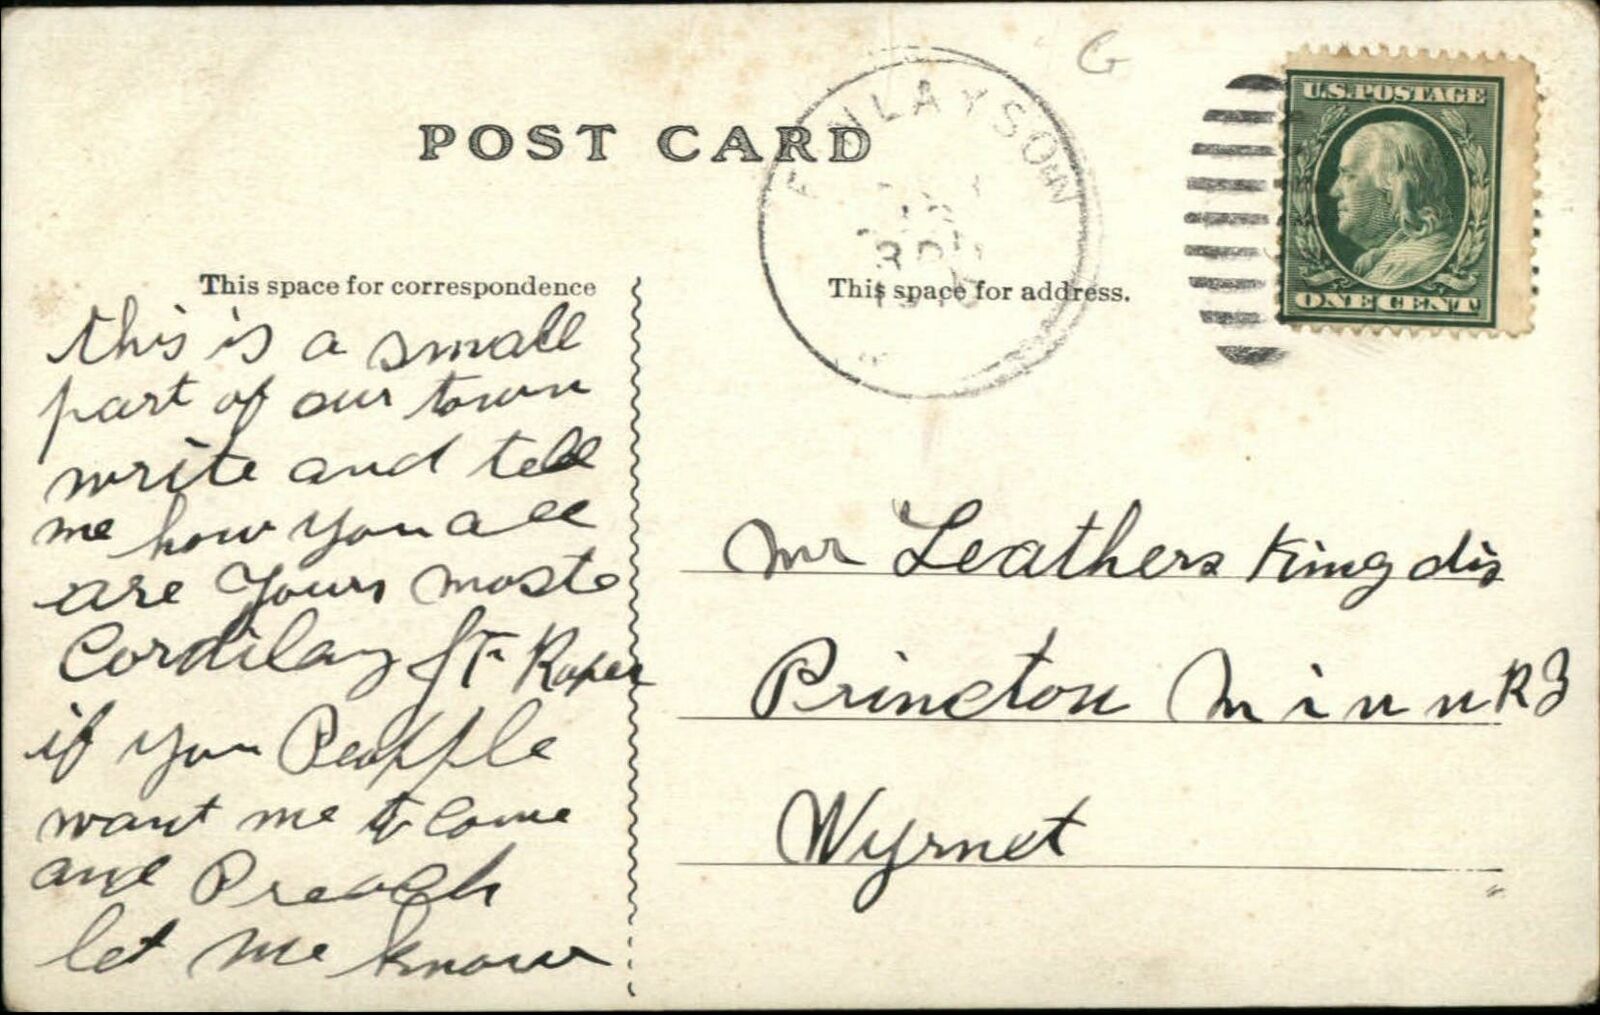 G
FINLAYSON
U.S. POSTAGE
ONE CENT
POST CARD
This space for correspondence
This space for address.
this is a small
part of our town
write and tell
me how you all
are yours moste
Cordilay J T Roper
if you Peapple
want me to come
and Preach
let me know
Mr Leathers King dis
Princton Minn R3
Wyrnet